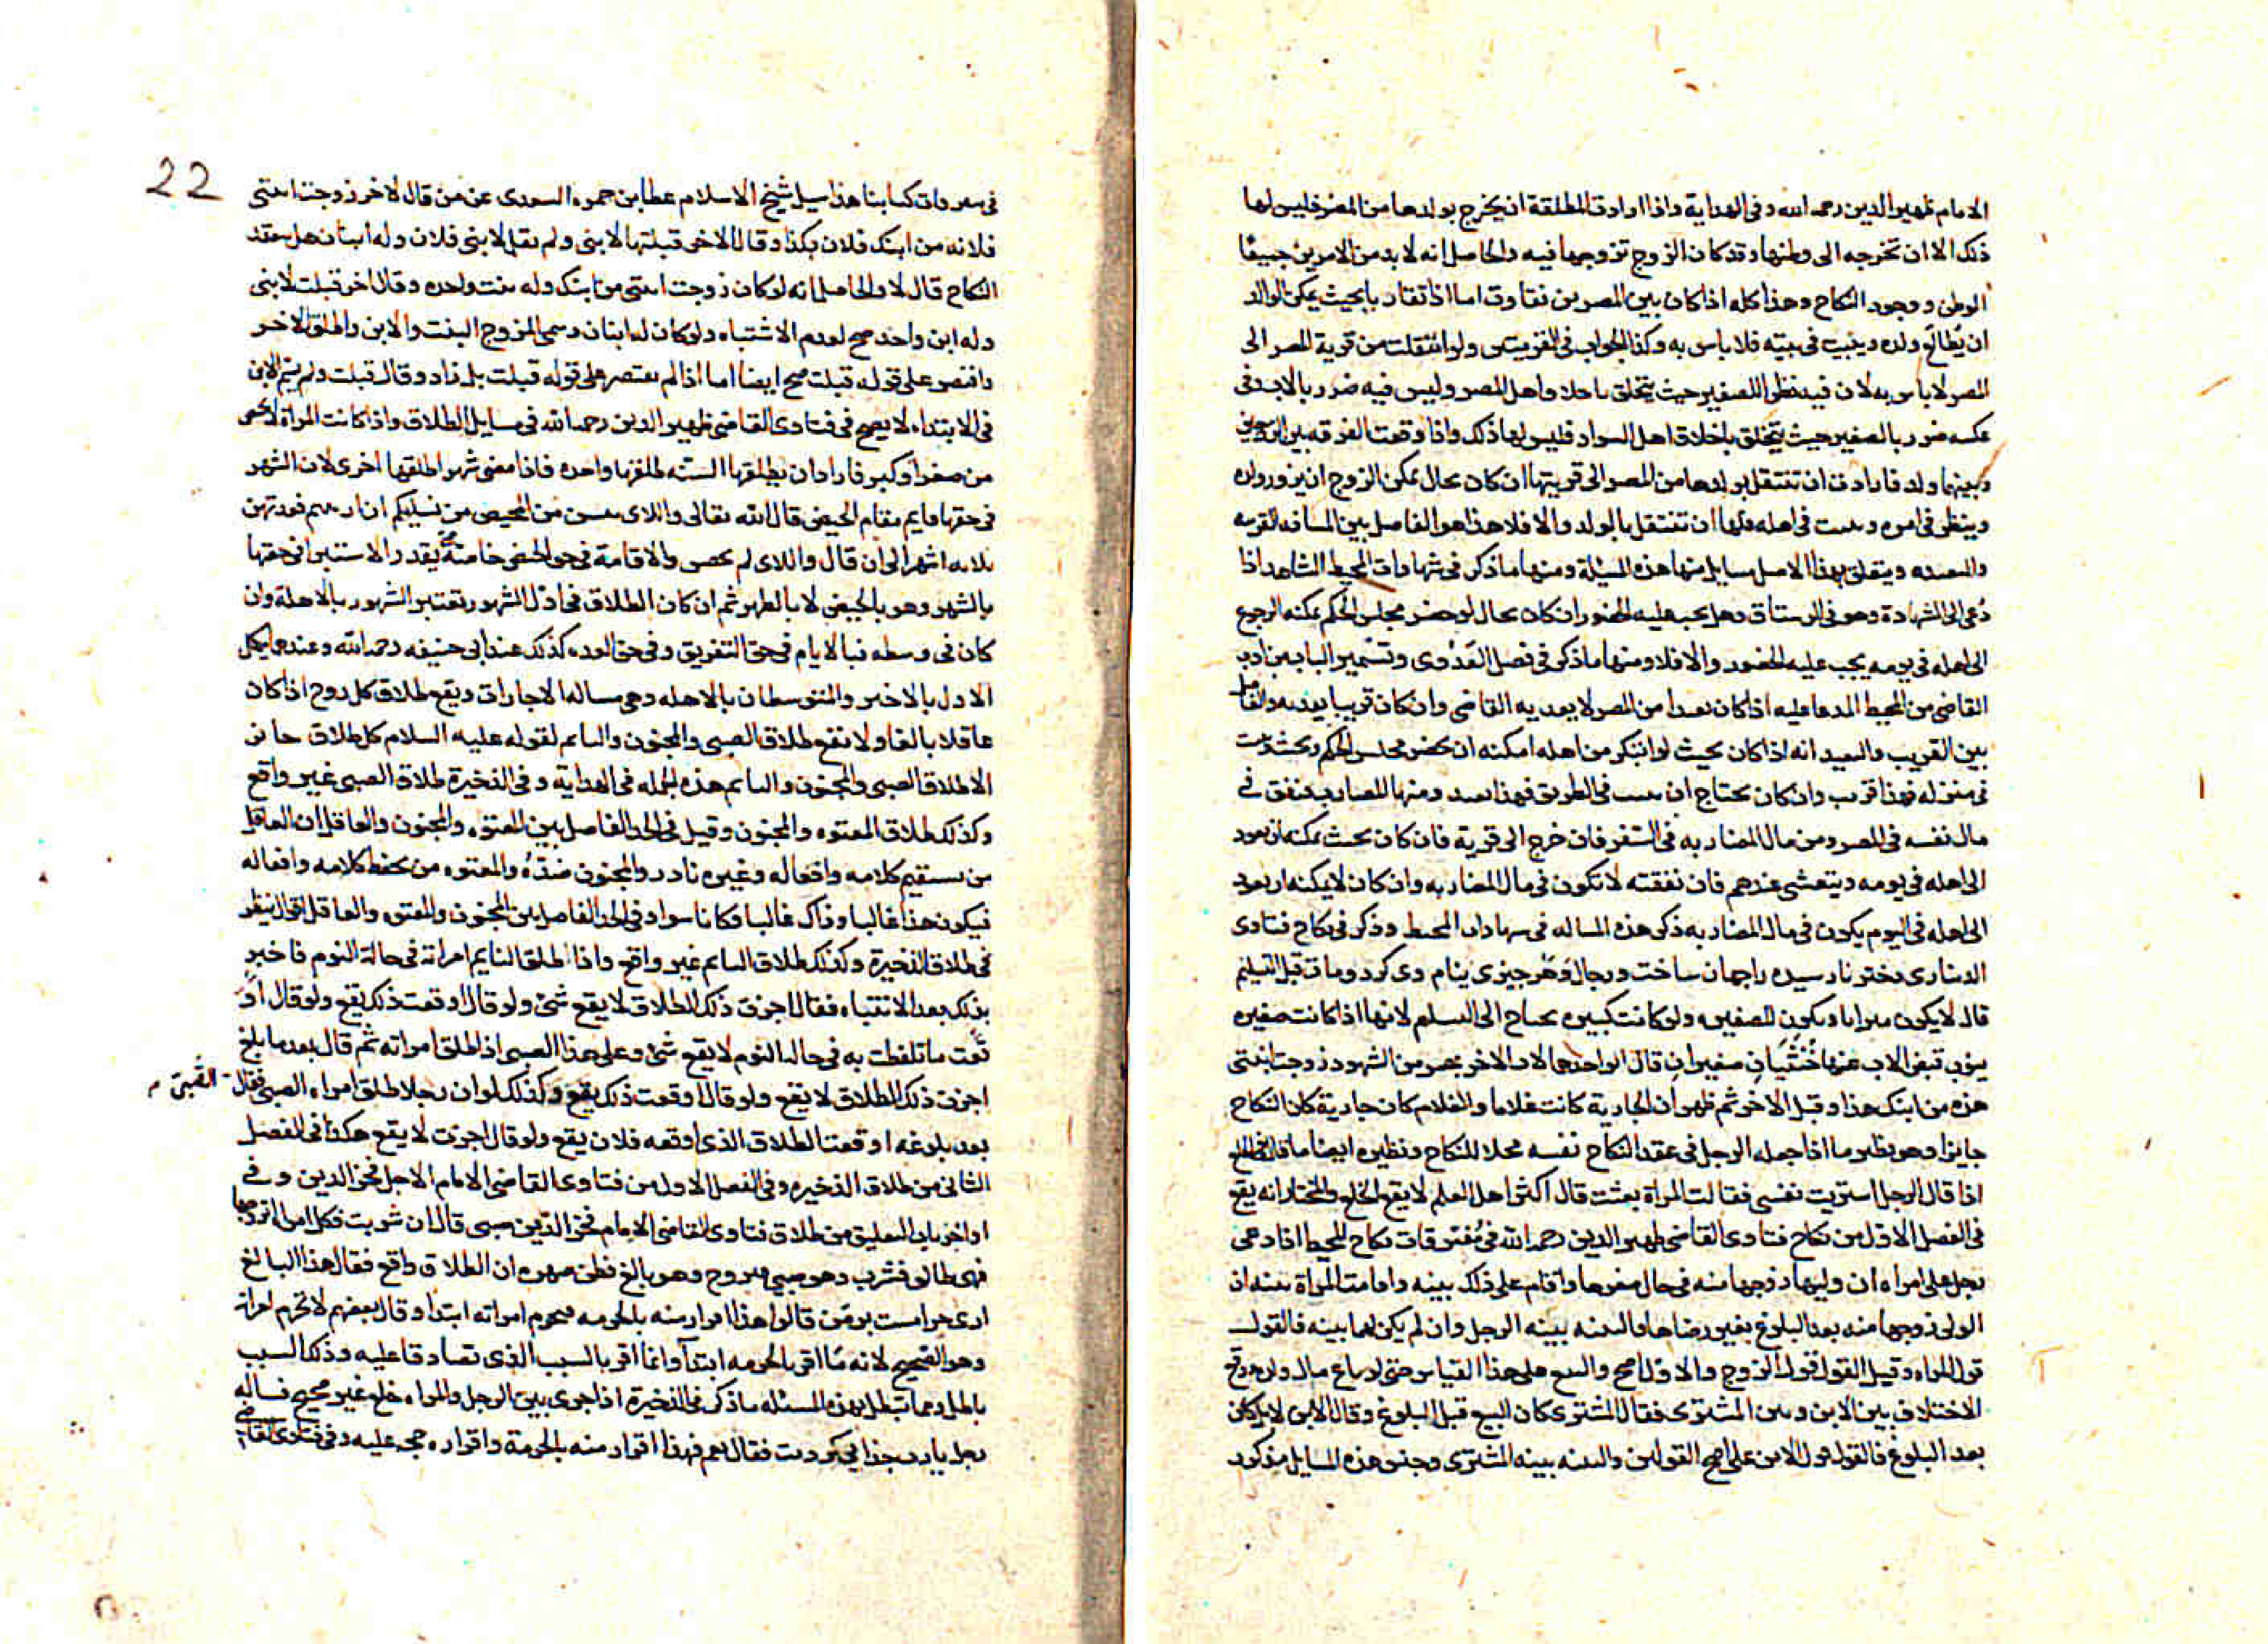 الامام ظهير الدين رحمه الله وفى الهداية واذا ارادت المطلقة ان يخرج بولدها من المصر فليس لها
ذلك الا ان تخرجه الى وطنها وقد كان الزوج تزوجها فيه والحاصل انه لا بد من الامرين جميعا
الوطن ووجود النكاح وهذا كله اذا كان بين المصرين تفاوت اما اذا تقاربا بحيث يمكن للوالد
ان يطالع ولده ويبيت فى بيته فلا باس به وكذا الجواب فى القريتين ولو انتقلت من قرية المصر الى
المصر لا باس به لان فيه نظرا للصغير حيث يتخلق باخلاق اهل المصر وليس فيه ضرر بالاب وفى
عكسه ضرر بالصغير حيث يتخلق باخلاق اهل السواد فليس لها ذلك واذا وقعت الفرقة بين الزوجين
وبينهما ولد فارادت ان تنتقل بولدها من المصر الى قريتها ان كان بحال يمكن الزوج ان يزور ولده
وينظر فى امره ويبيت فى اهله فلها ان تنتقل بالولد والا فلا هذا هو الفاصل بين المسافة القريبة
والبعيدة ويتعلق بهذا الاصل مسايل منها هذه المسئلة ومنها ما ذكر فى شهادات المحيط الشاهد اذا
دعى الى الشهادة وهو فى الرستاق وهل يجب عليه الحضور ان كان بحال لو حضر مجلس الحكم يمكنه الرجوع
الى اهله فى يومه يجب عليه الحضور والا فلا ومنها ما ذكر فى فصل العدوى وتسمير الباب من ادب
القاضى من المحيط المدعا عليه اذا كان بعيدا من المصر لا يعديه القاضى وان كان قريبا يعديه والفاصل
بين القريب والبعيد انه اذا كان بحيث لو ابتكر من اهله امكنه ان يحضر مجلس الحكم ويبيت
فى منزله فهذا قريب وان كان يحتاج ان يبيت فى الطريق فهذا بعيد ومنها المضارب ينفق فى
مال نفسه فى المصر ومن مال المضاربه فى السفر فان خرج الى قرية فان كان بحيث يمكنه ان يعود
الى اهله فى يومه ويتعشى عندهم فان نفقته لا تكون فى مال المضاربه وان كان لا يمكنه ان يعود
الى اهله فى اليوم يكون فى مال المضاربه ذكر هذه المساله فى شهادات المحيط وذكر فى نكاح فتاوى
الدينارى دختر نارسيده را جهاز ساخت وهر چيزى بنام وى كرد ومات قبل التسليم
قال لا يكون ميراثا ويكون للصغيره ولو كانت كبيره يحتاج الى التسليم لانها اذا كانت صغيره
ينوب قبض الاب عنها خنثيان صغيران قال الواحدهما الاب الاخر بمحضر من الشهود زوجت ابنتى
هذه من ابنك هذا وقبل الاخر ثم ظهر ان الجارية كانت غلاما والغلام كان جارية كان النكاح
جايزا وهو نظير ما اذا جعله الرجل فى عقد النكاح نفسه محلا للنكاح ونظيره ايضا ما قال فى الخلع
اذا قال الرجل اشتريت نفسى فقالت المراة بعت قال اكثر اهل العلم لا يقع الخلع والمختار انه يقع
فى الفصل الاول من نكاح فتاوى القاضى ظهير الدين رحمه الله فى متفرقات نكاح المحيط اذا ادعى
رجل على امراه ان وليها زوجها منه فى حال صغرها واقام على ذلك بينه واقامت المراة بينه ان
الولى زوجها منه بعد البلوغ بغير رضاها فالبينه بينه الرجل وان لم يكن لهما بينه فالقول
قول المراه وقيل القول قول الزوج والاول اصح والبيع على هذا القياس حتى لو باع مال ولده ووقع
الاختلاف بين الابن وبين المشترى فقال المشترى كان البيع قبل البلوغ وقال الابن لا بل كان
بعد البلوغ فالقول قول الابن على اصح القولين والبينه بينه المشترى وجنس هذه المسايل مذكور
22
فى كتابنا هذا سيل شيخ الاسلام عطا بن حمزه السعدى عن من قال لاخر زوجت ابنتى
فلانه من ابنك فلان بكذا وقال الاخر قبلتها لابنى ولم يقل لابنى فلان وله ابنان هل يعقد
النكاح قال لا والحاصل انه لو كان زوجت ابنتى من ابنك وله بنت واحده وقال اخر قبلت لابنى
وله ابن واحد صح لعدم الاشتباه ولو كان له ابنان وسمى المزوج البنت والابن واطلق الاخر
واقتصر على قوله قبلت صح ايضا اما اذا لم يقتصر على قوله قبلت بل زاد وقال قبلت ولم يسم الابن
فى الابتداء لا يصح فى فتاوى القاضى ظهير الدين رحمه الله فى مسايل الطلاق واذا كانت المراة لا تحيض
من صغر او كبر فاراد ان يطلقها السنه طلقها واحده فاذا مضى شهر اطلقها اخرى لان الشهر
فى حقها قايم مقام الحيض قال الله تعالى واللاى يئسن من المحيض من نسايكم ان ارتبتم فعدتهن
ثلاثه اشهر الى ان قال واللاى لم يحضن والاقامة فى حق الحيض خاصة يقدر الاستبرا فى حقها
بالشهر وهو بالحيض لا بالطهر ثم ان كان الطلاق فى اول الشهور تعتبر الشهور بالاهلة وان
كان فى وسطه فبالايام فى حق التفريق وفى حق العده كذلك عند ابى حنيفه رحمه الله وعندهما يكمل
الاول بالاخير والمتوسطان بالاهله وهى مساله الاجارات ويقع طلاق كل زوج اذا كان
عاقلا بالغا ولا يقع طلاق الصبى والمجنون والنايم لقوله عليه السلام كل طلاق جايز
الا طلاق الصبى والمجنون والنايم هذه الجمله فى الهداية وفى الذخيرة طلاق الصبى غير واقع
وكذلك طلاق المعتوه والمجنون وقيل فى الحد الفاصل بين المعتوه والمجنون والعاقل ان العاقل
من يستقيم كلامه وافعاله وغيره نادر والمجنون ضده والمعتوه من يختلط كلامه وافعاله
فيكون هذا غالبا وذاك غالبا فكانا سواء وفى الحد الفاصل بين المجنون والمعتوه والعاقل اقوال ينظر
فى طلاق الذخيرة وكذلك طلاق النايم غير واقع واذا طلق النايم امراته فى حالة النوم فاخبر
بذلك بعد الانتباه فقال اجزت ذلك الطلاق لا يقع شئ ولو قال اوقعت ذلك يقع ولو قال او
قعت ما تلفظت به فى حاله النوم لا يقع شئ وعلى هذا الصبى اذا طلق امراته ثم قال بعد ما بلغ
اجزت ذلك الطلاق لا يقع ولو قال اوقعت ذلك يقع وكذلك لو ان رجلا طلق امراه الصبى فقال الصبى م
بعد بلوغه اوقعت الطلاق الذى اوقعه فلان يقع ولو قال اجزت لا يقع هكذا فى الفصل
الثانى من طلاق الذخيره وفى الفصل الاول من فتاوى القاضى الامام الاجل فخر الدين وفى
اواخر باب التعليق من طلاق فتاوى القاضى الامام فخر الدين صبى قال ان شربت فكل امراة اتزوجها
فهى طالق فشرب وهو صبى فتزوج وهو بالغ فظن صهره ان الطلاق واقع فقال هذا البالغ
ارى حرامست بر من قالوا هذا اقرار منه بالحرمه فتحرم امراته ابتداء وقال بعضهم لا تحرم امراته
وهو الصحيح لانه ما اقر بالحرمه ابتداء وانما اقر بالسبب الذى تصادقا عليه وذلك السبب
باطل ومما يتصل بهذه المسئله ما ذكر فى الذخيرة اذا جرى بين الرجل والمراه خلع غير صحيح فساله
رجل فقال نعم فهذا اقرار منه بالحرمة واقراره حجه عليه وفى فتاوى القاضى